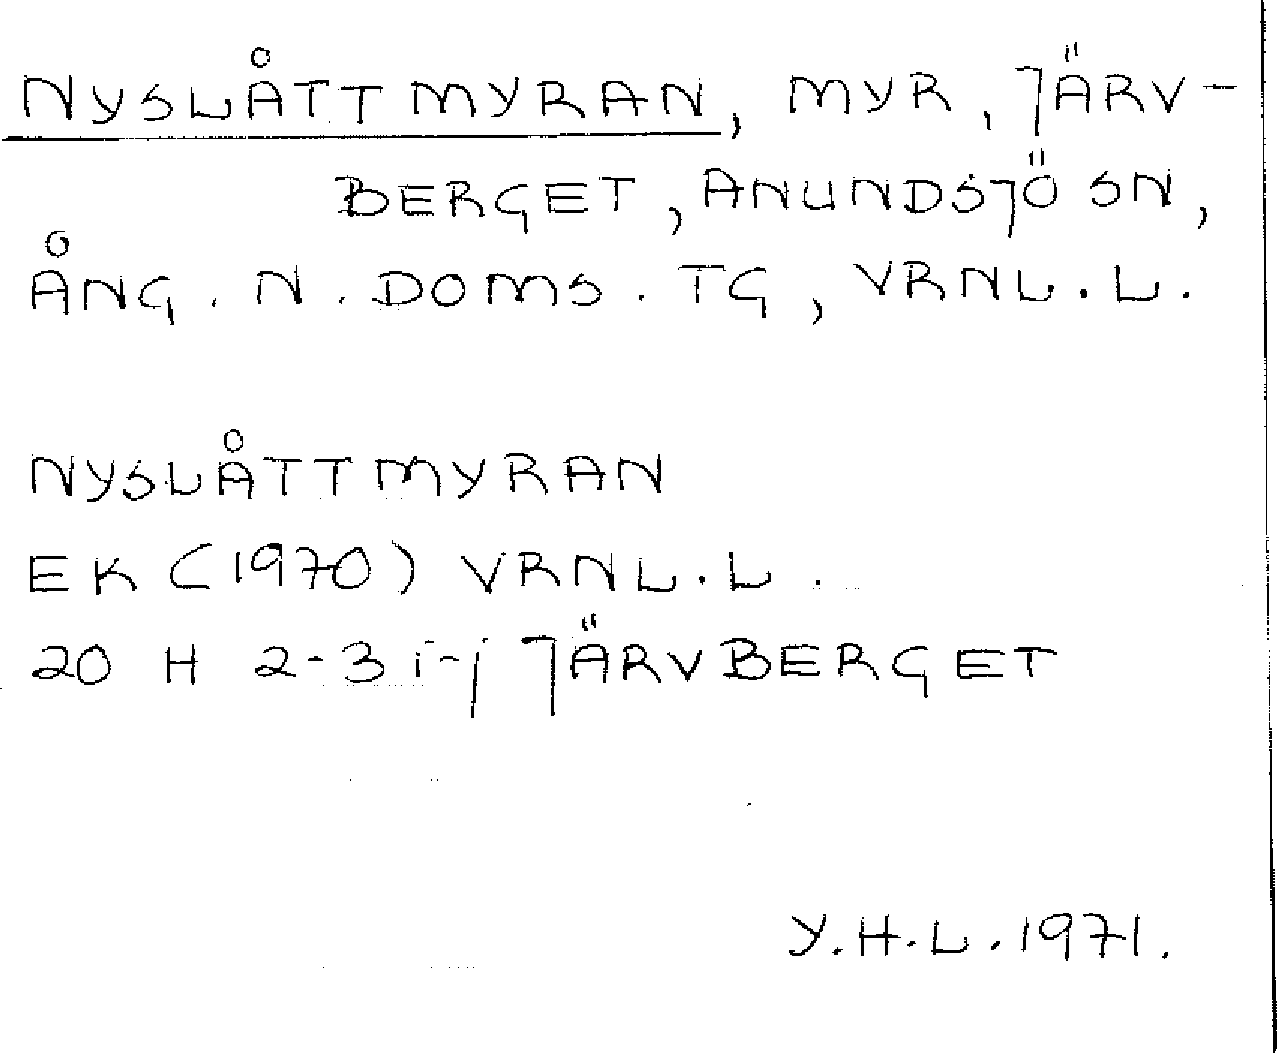 NYSLÅTTMYRAN, MYR, JÄRV-
BERGET, ANUNDSJÖ SN,
ÅNG. N. DOMS. TG, VRNL. L.
NYSLÅTTMYRAN
EK (1970) VRNL. L.
20 H 2-3 i-j JÄRVBERGET
Y.H.L. 1971.